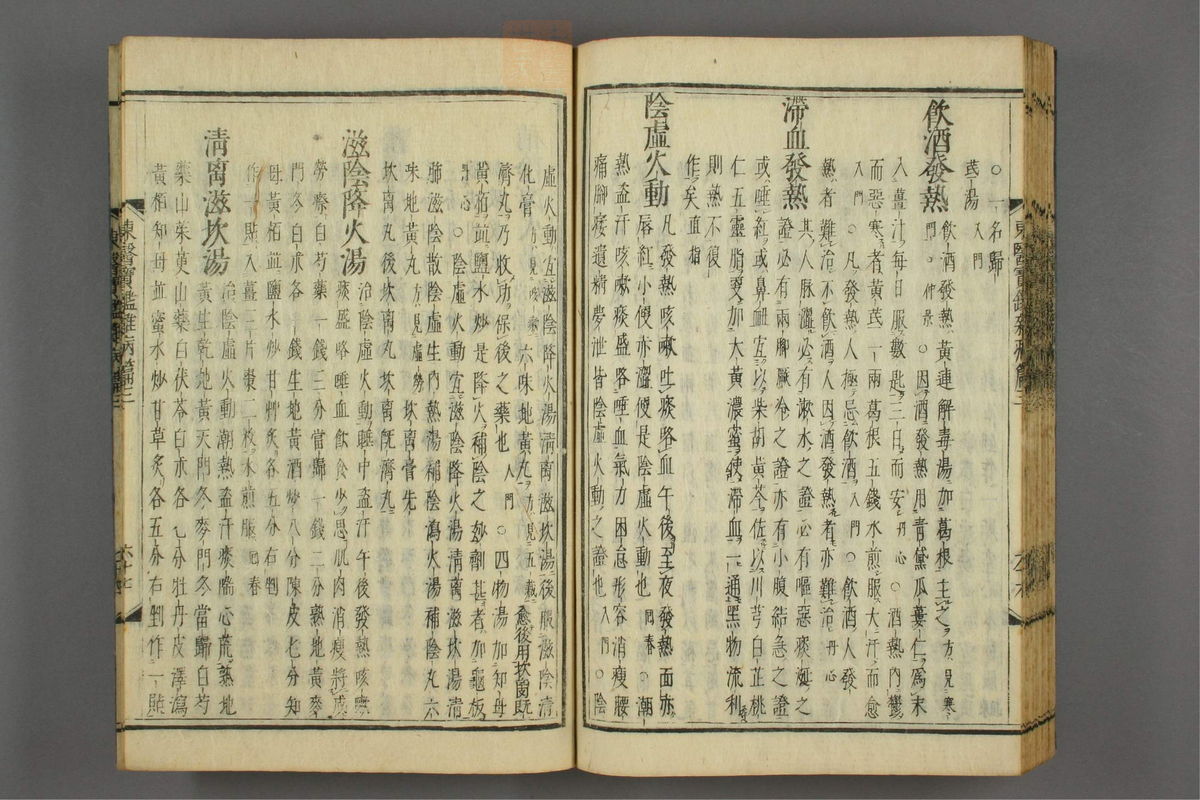 ○一名歸
芪湯入門
飮酒發熱
飮酒發熱黃連解毒湯加葛根主之方見寒
門仲景○因酒發熱用靑黛瓜蔞仁爲末
入薑汁每日服數匙三日而安丹心○酒熱內鬱
而惡寒者黃芪一兩葛根五錢水煎服大汗而愈
入門○凡發熱人極忌飮酒入門○飮酒人發
熱者難治不飮酒人因酒發熱者亦難治丹心
滯血發熱
其人脈澁必有漱水之證必有嘔惡痰涎之
證必有兩脚厥冷之證亦有小腹結急之證
或唾紅或鼻衄宜以柴胡黃芩佐以川芎白芷桃
仁五靈脂更加大黃濃蜜使滯血一通黑物流利
則熱不復
作矣直指
陰虛火動
凡發熱咳嗽吐痰咯血午後至夜發熱面赤
唇紅小便赤澁便是陰虛火動也回春○潮
熱盜汗咳嗽痰盛咯唾血氣力困怠形容消瘦腰
痛脚痿遺精夢泄皆陰虛火動之證也入門○陰
虛火動宜滋陰降火湯淸离滋坎湯後服滋陰淸
化膏方見咳嗽六味地黃丸方見五藏愈後用坎离旣
濟丸乃收功保後之藥也入門○四物湯加知母
黃栢並鹽水炒是降火補陰之妙劑甚者加龜板
丹心○陰虛火動宜滋陰降火湯淸离滋坎湯淸
肺滋陰散陰虛生內熱湯補陰瀉火湯補陰丸六
味地黃丸方見虛勞坎离膏先
坎离丸後坎离丸坎离旣濟丸
滋陰降火湯
治陰虛火動睡中盜汗午後發熱咳嗽
痰盛咯唾血飮食少思肌肉消瘦將成
勞瘵白芍藥一錢三分當歸一錢二分熟地黃麥
門冬白朮各一錢生地黃酒炒八分陳皮七分知
母黃栢並鹽水炒甘艸灸各五分右剉
作一貼入薑三片棗二枚水煎服回春
淸离滋坎湯
治陰虛火動潮熱盜汗痰喘心慌熟地
黃生乾地黃天門冬麥門冬當歸白芍
藥山茱萸山藥白伏苓白朮各七分牡丹皮澤瀉
黃栢知母並蜜水炒甘草灸各五分右剉作一貼